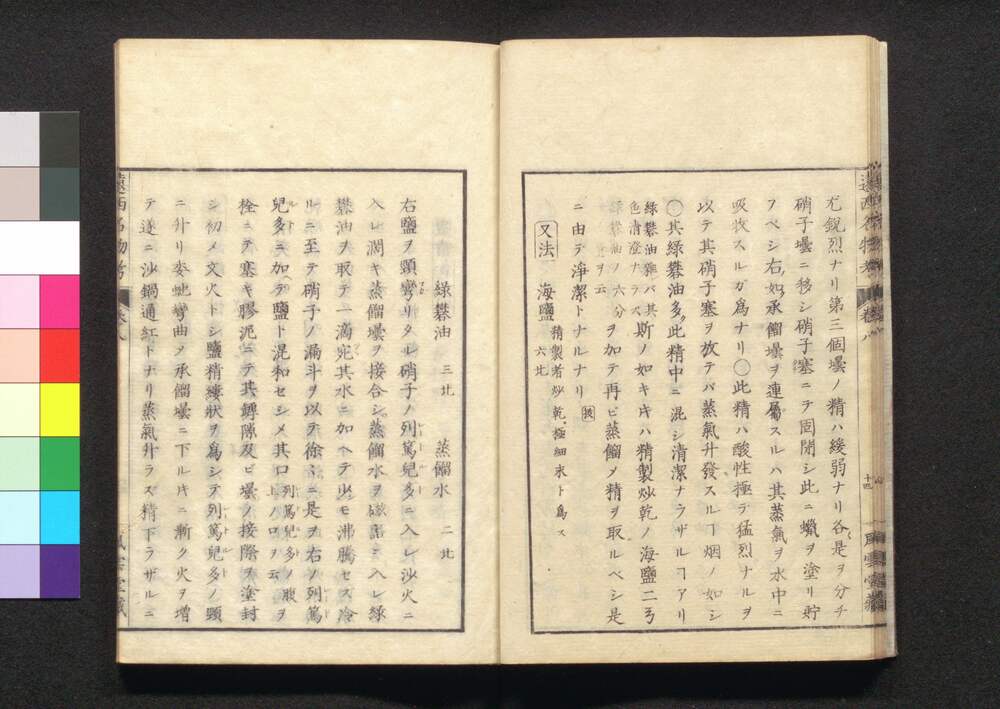 尤鋭烈ナリ第三個壜ノ精ハ緩弱ナリ各是ヲ分チ
硝子壜ニ移シ硝子塞ニテ固閉シ此ニ蠟ヲ塗リ貯
フベシ右ノ如ク承餾壜ヲ連屬スルハ其蒸氣ヲ水中ニ
吸收スルガ爲ナリ〇此精ハ酸性極テ猛烈ナルヲ
以テ其硝子塞ヲ放テバ蒸氣升發スルヿ烟ノ如シ
〇其綠礬油多ク此精中ニ混シ清潔ナラザルヿアリ
綠礬油雜バ其色清澄ナラズ
斯ノ如キ𪜈ハ精製炒乾ノ海鹽二ヲ
綠礬油ノ六分
ヲ云
ヲ加テ再ビ蒸餾メ精ヲ取ルベシ是
ニ由テ淨潔トナルナリ
又法
海鹽
精製者炒乾、極細末ト爲ス
六
綠礬油 三
蒸餾水 二
右鹽ヲ頸彎リタル硝子ノ列篤兒多ニ入レ沙火ニ
入レ濶キ蒸餾壜ヲ接合シ蒸餾水ヲ
ニ入レ綠
礬油ヲ取テ一滴
其水ニ加ヘテ少モ沸騰セズ冷
ルニ至テ硝子ノ漏斗ヲ以テ徐々ニ是ヲ右ノ列篤
兒多ニ加テ鹽ト混和セシメ其口
列篤兒多ノ腹ヲ
上ノ口ヲ云
ヲ
栓ニテ塞キ膠泥ニテ其罅隙及ビ壜ノ接際ヲ塗封
シ初メ文火トシ鹽精縷狀ヲ爲シテ列篤兒多ノ頸
ニ升リ委蛇彎曲メ承餾壜ニ下ル𪜈ニ漸ク火ヲ增
テ遂ニ沙鍋通紅トナリ蒸氣升ラズ精下ラザルニ
遠西名物考
卷八
十四
風雲堂藏